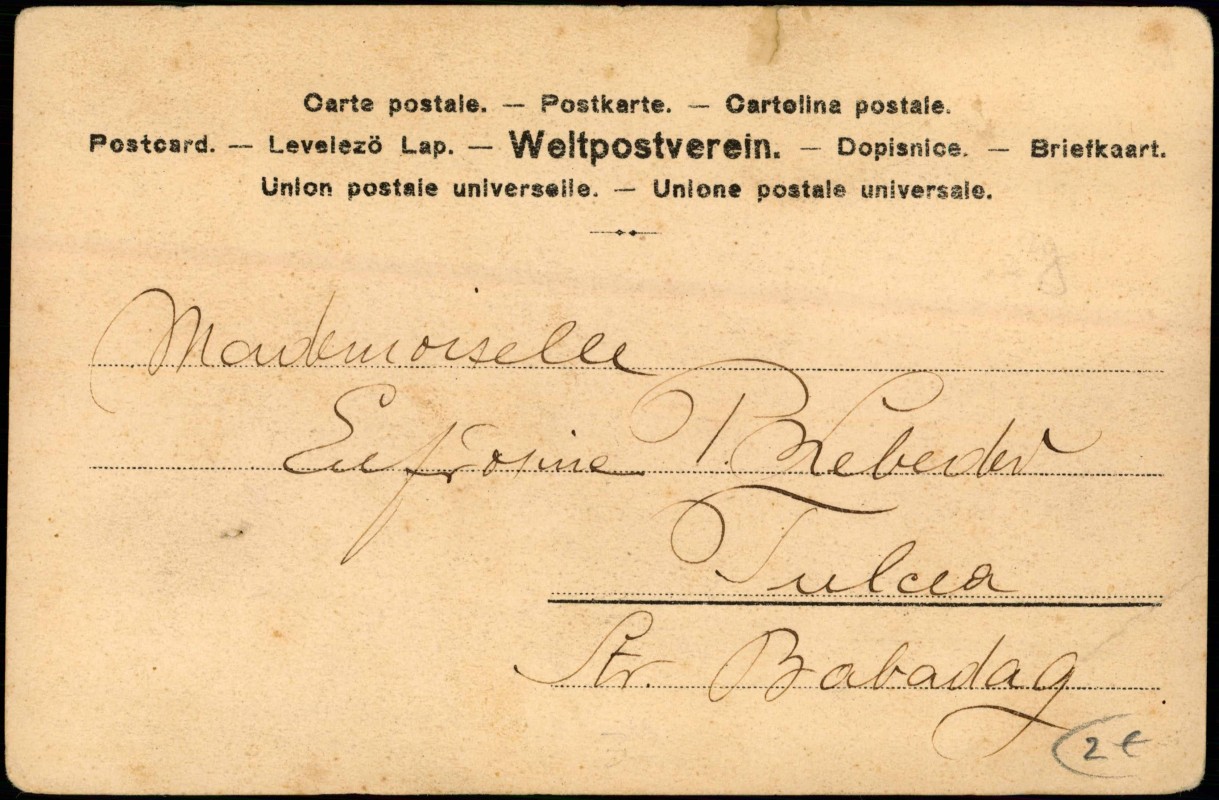 Carte postale. — Postkarte. — Cartolina postale.
Postcard. — Levelezö Lap. — Weltpostverein. — Dopisnice. — Briefkaart.
Union postale universelle. — Unione postale universale.
Mademoiselle
Eufrosine
Tulcea
Str. Babadag
2 €